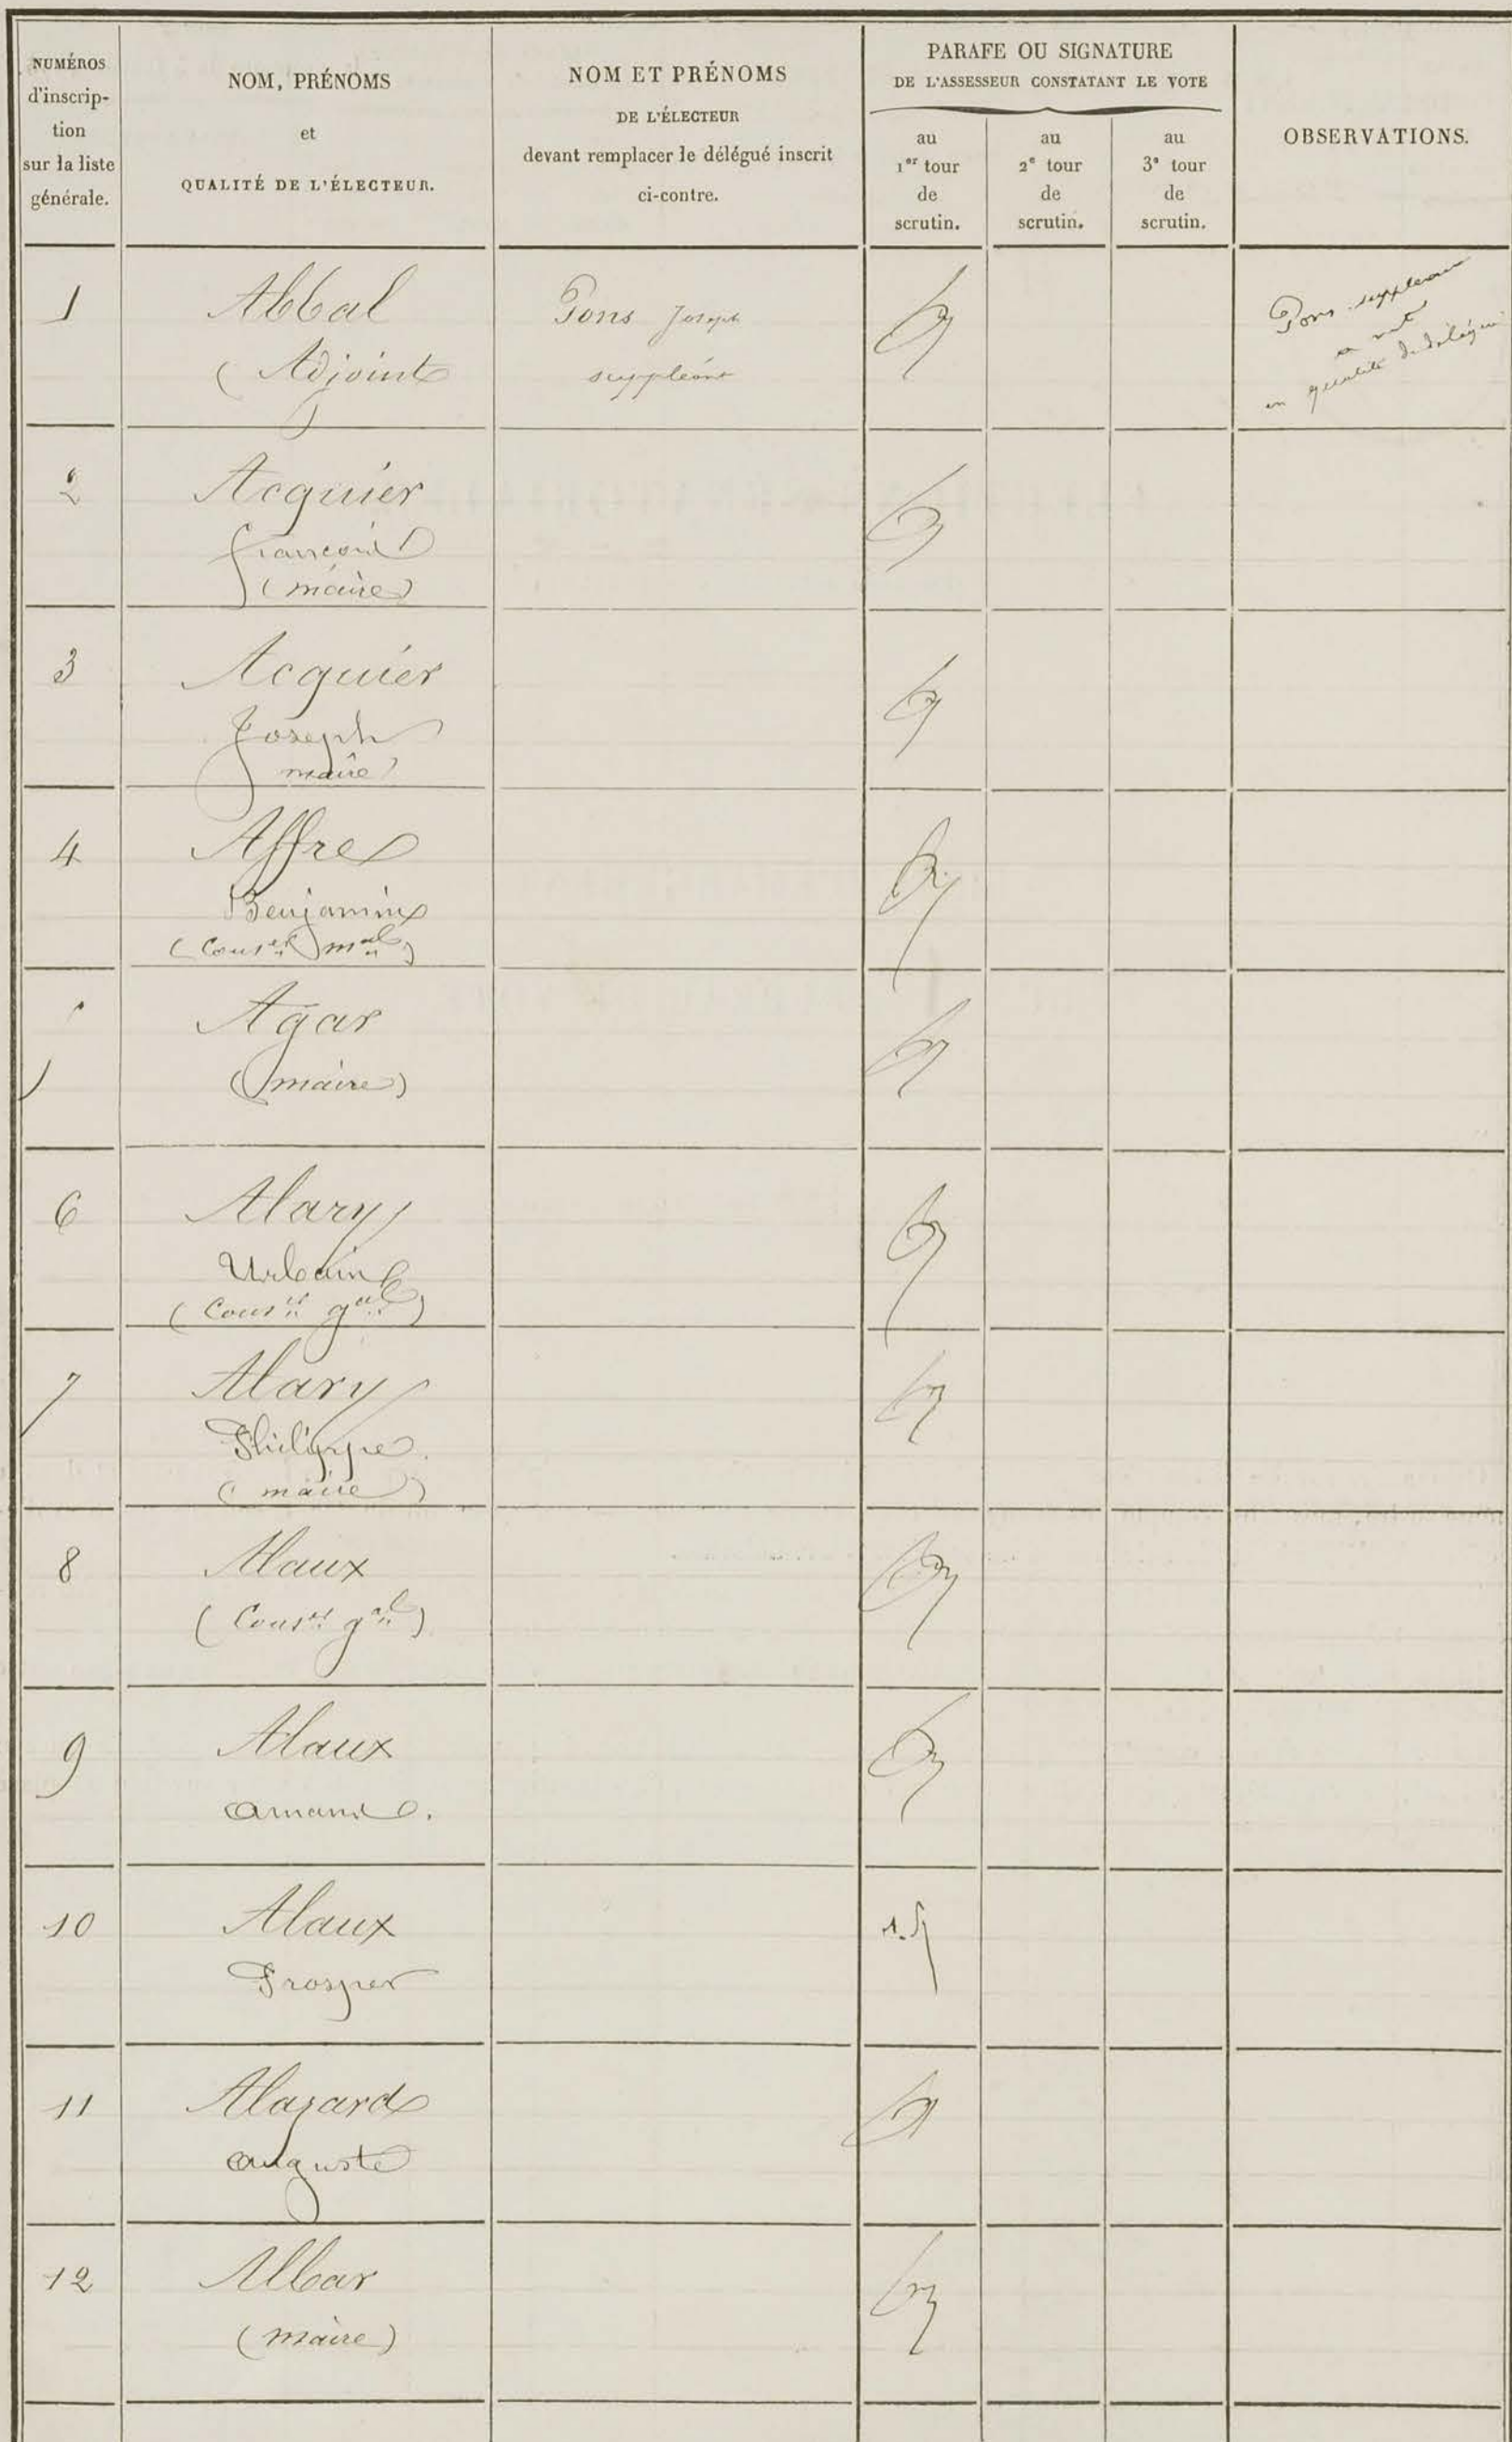 NUMÉROS
d'inscrip-
tion
sur la liste
générale.
NOM, PRÉNOMS
et
QUALITÉ DE L'ÉLECTEUR.
NOM ET PRÉNOMS
DE L'ÉLECTEUR
devant remplacer le délégué inscrit
ci-contre.
PARAFE OU SIGNATURE
DE L'ASSESSEUR CONSTATANT LE VOTE
au
1er tour
de
scrutin.
au
2e tour
de
scrutin.
au
3e tour
de
scrutin.
OBSERVATIONS.
1
Abbal
(Adjoint
Pons Joseph
suppléant
Pons suppléant
a voté
en qualité de délégué
2
Acquier
François
(maire)
3
Acquier
Joseph
maire)
4
Affre
Benjamin
(Conser mal)
Agar
(maire)
6
Alary
Urbain
(Conser gal)
7
Alary
Philippe
(maire)
8
Alaux
(Conser gal)
9
Alaux
Amand.
10
Alaux
Prosper
11
Alazard
Auguste
12
Albar
(maire)